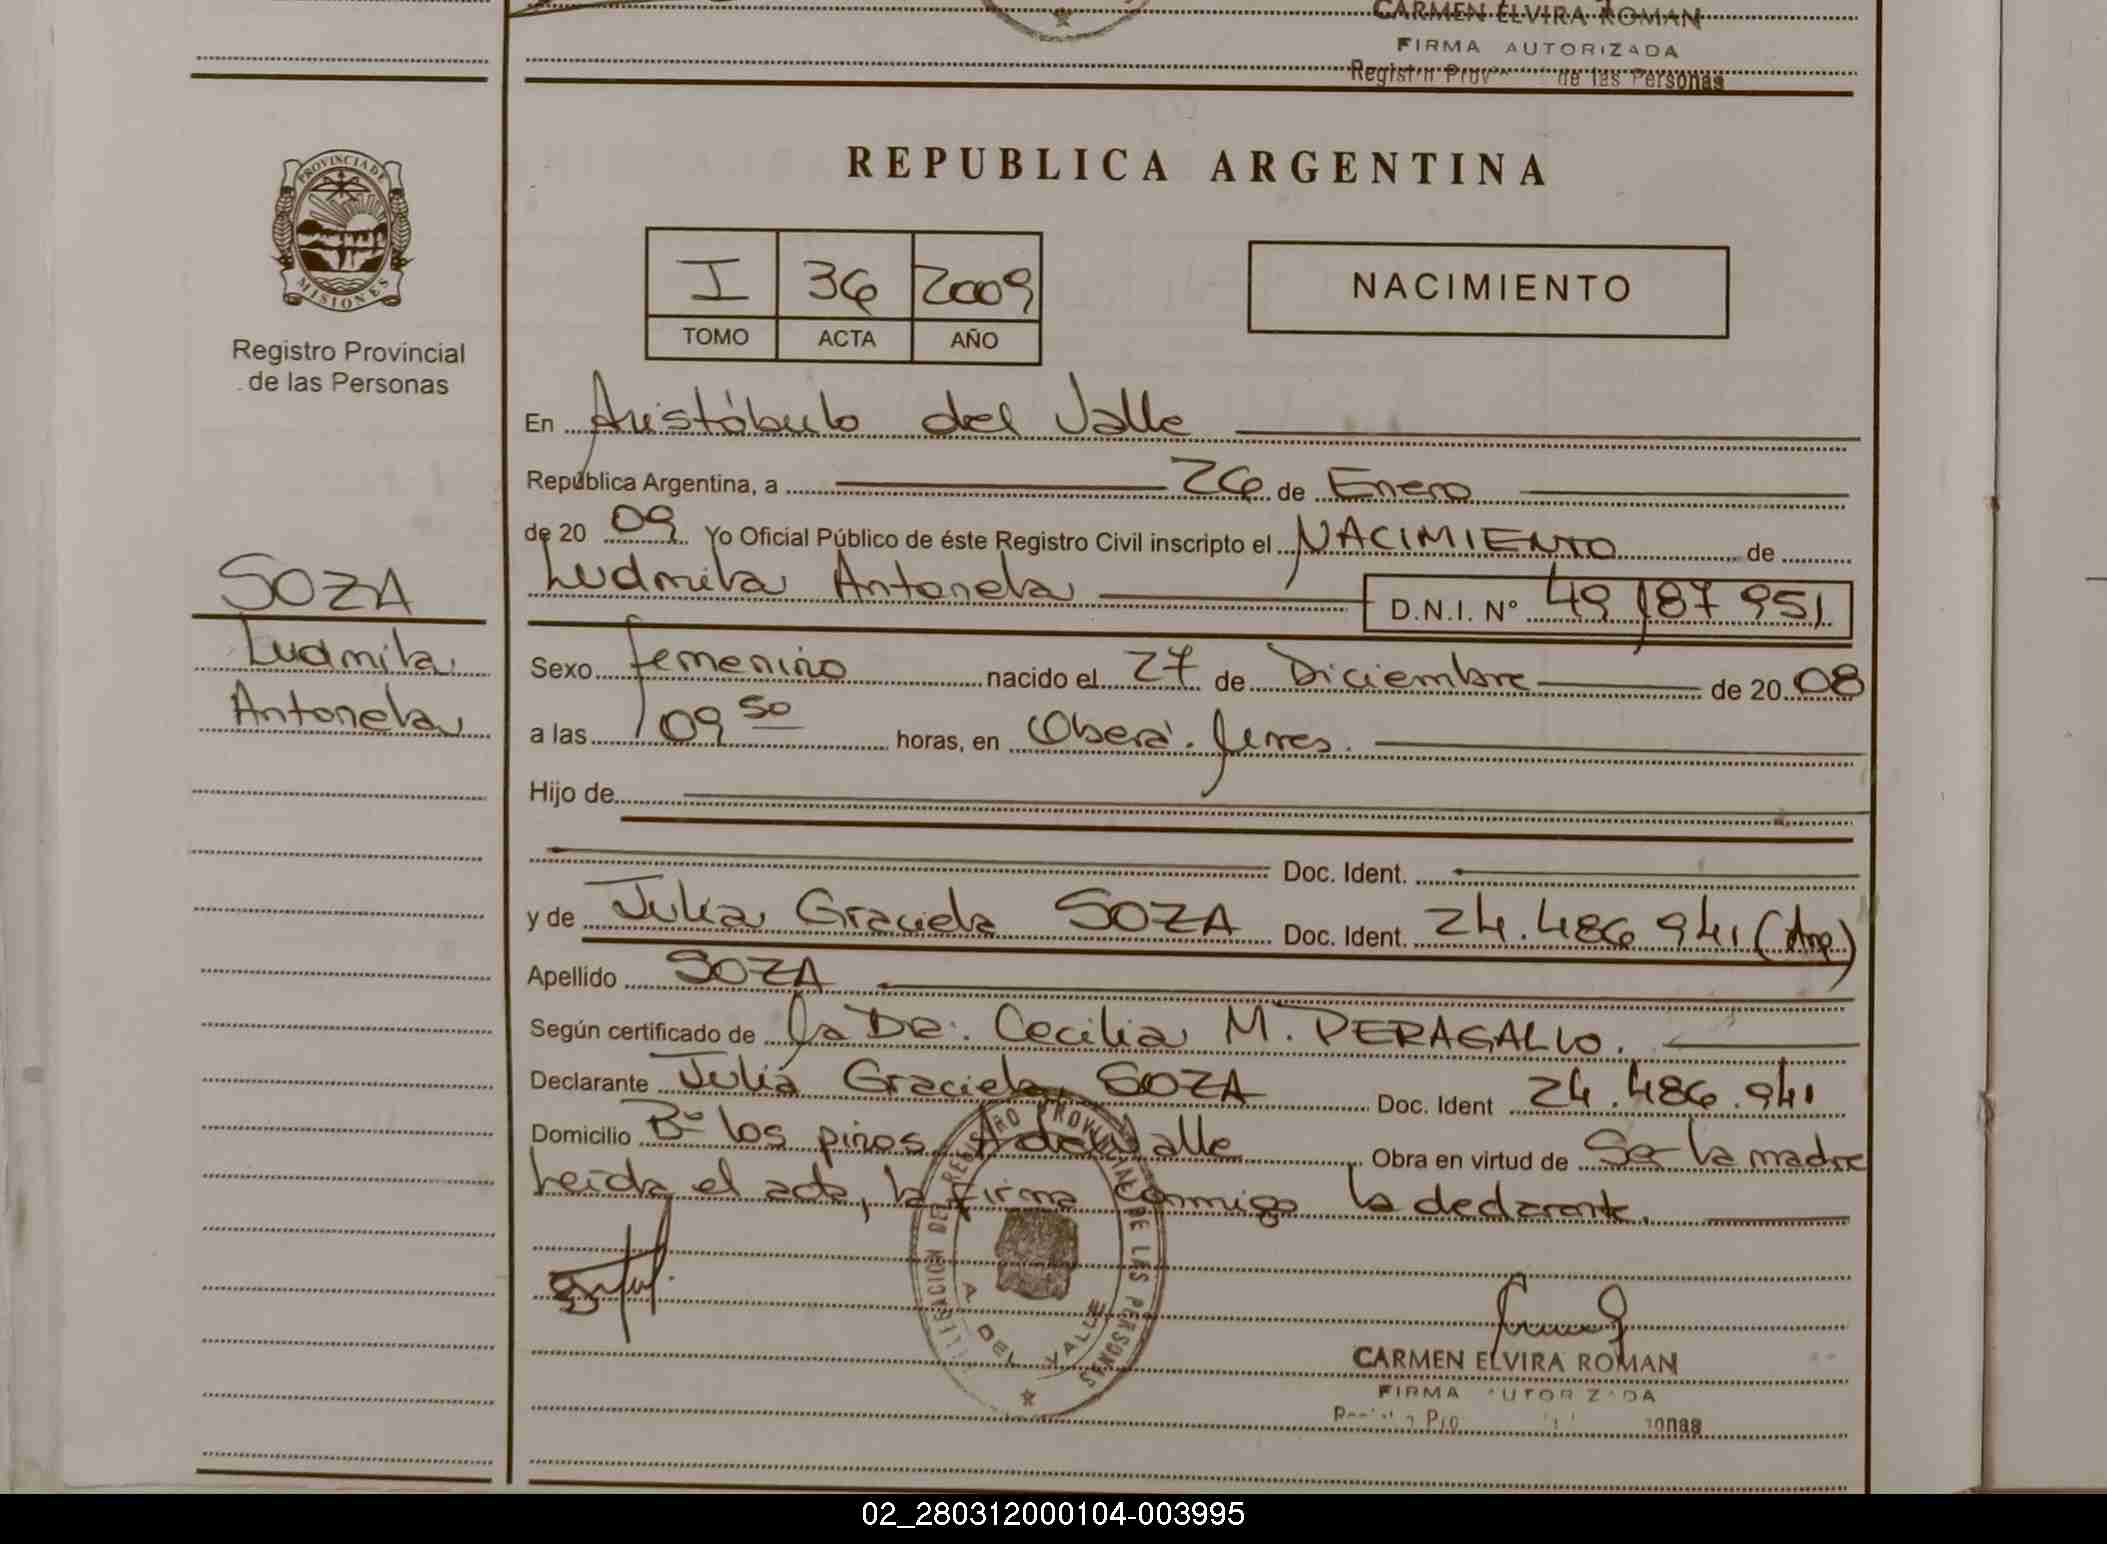 CARMEN ELVIRA ROMAN
FIRMA AUTORIZADA
Registro Prov de las Personas
PROVINCIA DE
MISIONES
Registro Provincial
de las Personas
SOZA
Ludmila
Antonela
REPUBLICA ARGENTINA
I 36 2009
TOMO ACTA AÑO
NACIMIENTO
En Aristóbulo del Valle
República Argentina, a 26 de Enero
de 20 09 Yo Oficial Público de éste Registro Civil inscripto el NACIMIENTO de
Ludmila Antonela D.N.I. Nº 49187951
Sexo femenino nacido el 27 de Diciembre de 20 08
a las 09 50 horas, en Oberá.
Hijo de
Doc. Ident.
y de Julia Graciela SOZA Doc. Ident. 24.486.941 (Arg.)
Apellido SOZA
Según certificado de la DR: Cecilia M. PERAGALLO.
Declarante Julia Graciela SOZA Doc. Ident 24.486.941
Domicilio Bº los pinos A del Valle Obra en virtud de Ser la madre
Leida el acta, la firma conmigo la declarante.
DELEGACION DEL REGISTRO PROVINCIAL DE LAS PERSONAS
A. DEL VALLE
CARMEN ELVIRA ROMAN
FIRMA AUTORIZADA
02_280312000104-003995